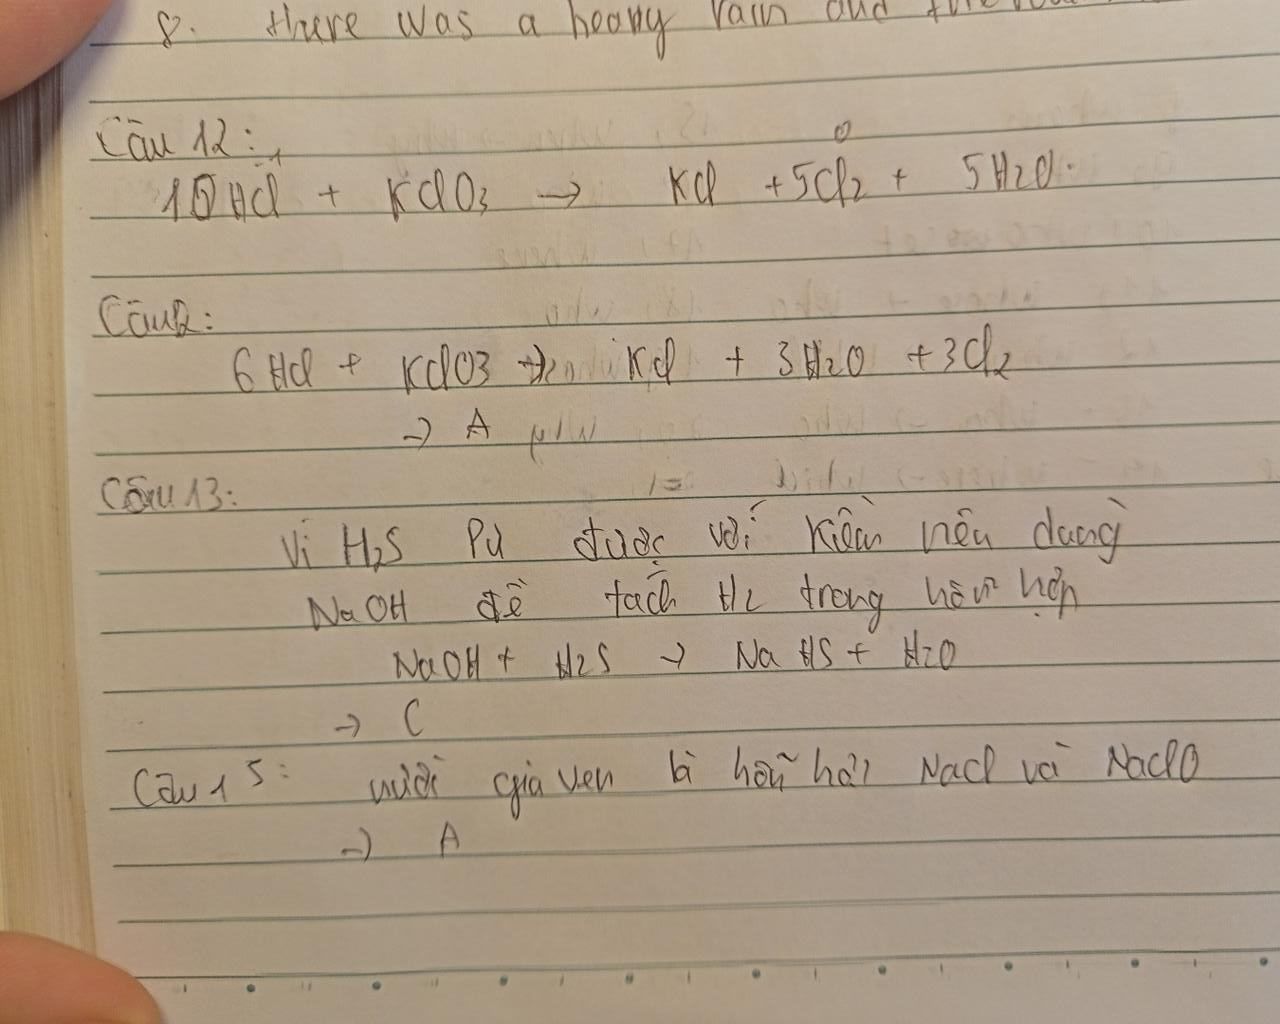 8. there was a heavy rain and
Câu 12:
-1 0
10HCl + KClO3 → KCl + 5Cl2 + 5H2O.
Câu 12:
6HCl + KClO3 → KCl + 3H2O + 3Cl2
→ A
Câu 13:
Vì H2S Pứ được với Kiềm nên dùng
NaOH để tách H2 trong hỗn hợp
NaOH + H2S → NaHS + H2O
→ C
Câu 15: nước gia ven là hỗn hợp NaCl và NaClO
→ A